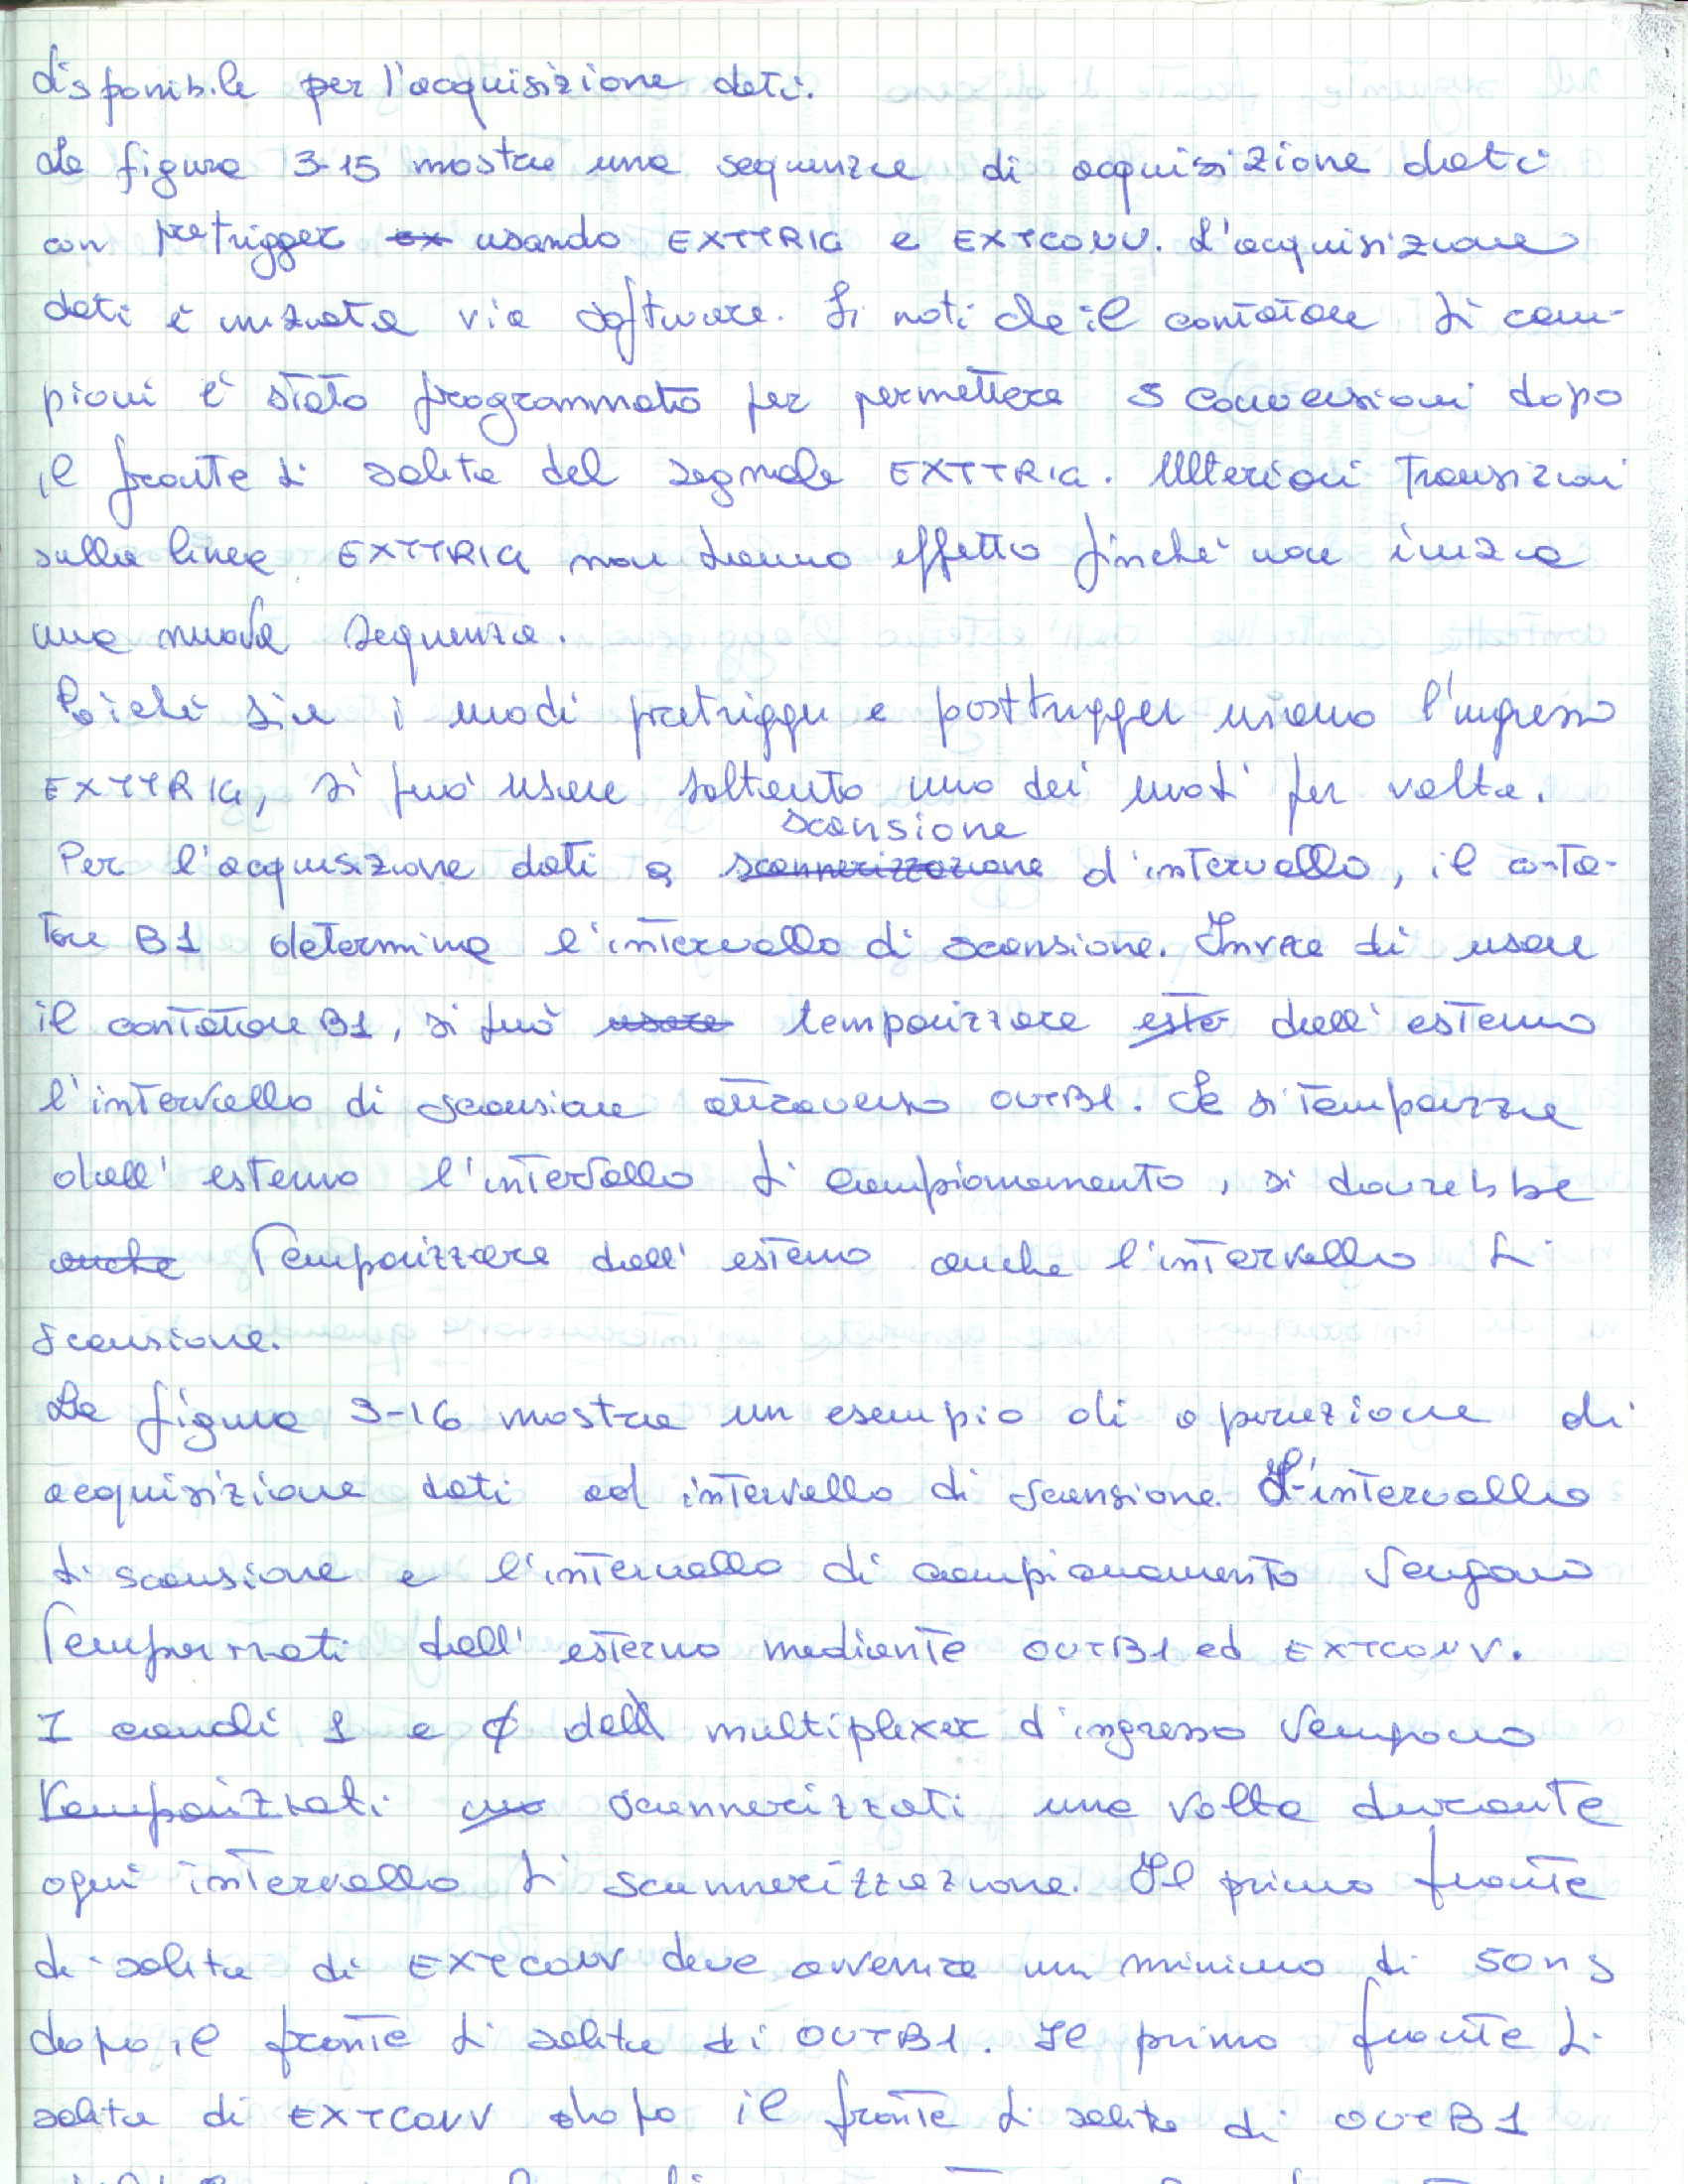 disponibile per l'acquisizione dati.
La figura 3-15 mostra una sequenza di acquisizione dati
con pretrigger ex usando EXTTRIG e EXTCONV. L'acquisizione
dati è iniziata via software. Si noti che il contatore di cam-
pioni è stato programmato per permettere 5 conversioni dopo
il fronte di salita del segnale EXTTRIG. Ulteriori transizioni
sulla linea EXTTRIG non hanno effetto finché non inizia
una nuova sequenza.
Poiché sia i modi pretrigger e posttrigger usano l'ingresso
EXTTRIG, si può usare soltanto uno dei modi per volta.
scansione
Per l'acquisizione dati a scannerizzazione d'intervallo, il conta-
tore B1 determina l'intervallo di scansione. Invece di usare
il contatore B1, si può usare temporizzare este dall'esterno
l'intervallo di scansione attraverso OUTB1. Se si temporizza
dall'esterno l'intervallo di campionamento, si dovrebbe
anche temporizzare dall'esterno anche l'intervallo di
scansione.
La figura 3-16 mostra un esempio di operazione di
acquisizione dati ad intervallo di scansione. L'intervallo
di scansione e l'intervallo di campionamento vengono
temporizzati dall'esterno mediante OUTB1 ed EXTCONV.
I canali 1 e 0 del multiplexer d'ingresso vengono
temporizzati una scannerizzati una volta durante
ogni intervallo di scannerizzazione. Il primo fronte
di salita di EXTCONV deve avvenire un minimo di 50ns
dopo il fronte di salita di OUTB1. Il primo fronte di
salita di EXTCONV dopo il fronte di salita di OUTB1